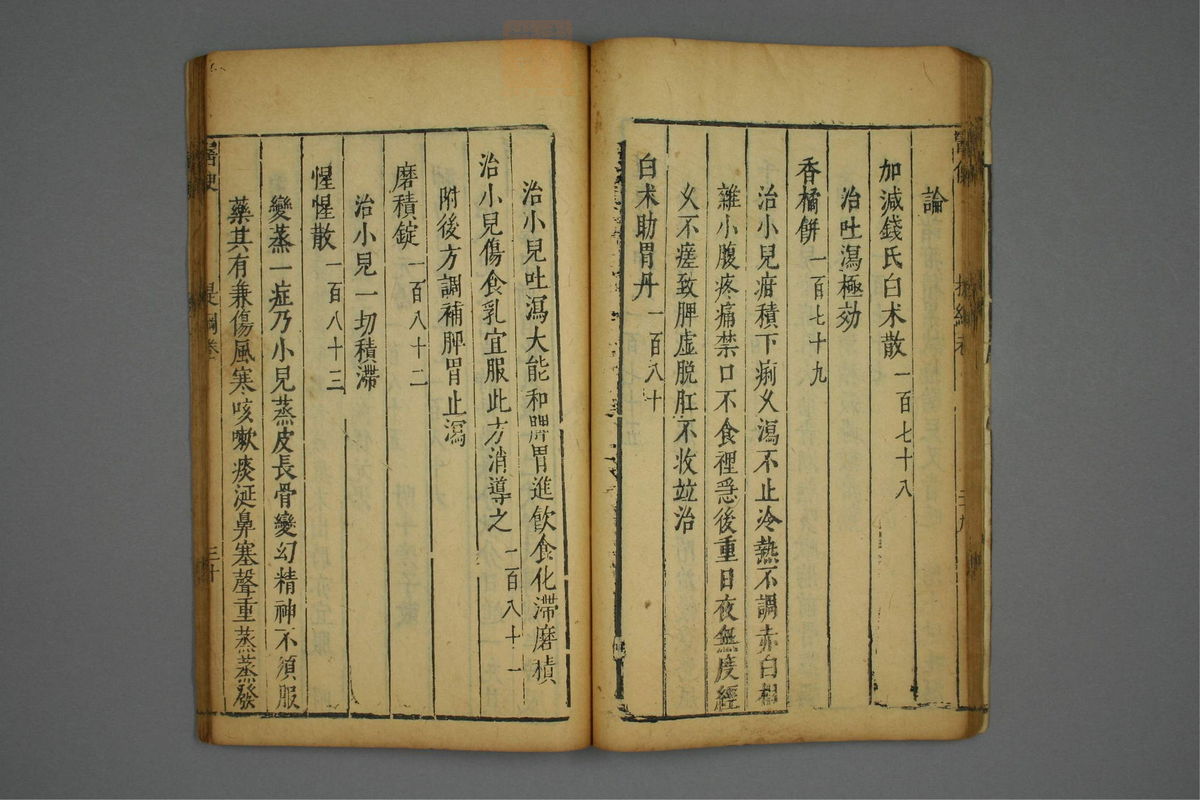 論
加減錢氏白朮散一百七十八
治吐瀉極効
香橘餅一百七十九
治小兒疳積下痢乆瀉不止冷熱不調赤白相
雜小腹疼痛禁口不食裡急後重日夜無度經
乆不瘥致脾虛脫肛不收竝治
白朮助胃丹一百八十
治小兒吐瀉大能和脾胃進飲食化滯磨積
治小兒傷食乳宜服此方消導之一百八十一
附後方調補脾胃止瀉
磨積錠一百八十二
治小兒一切積滯
惺惺散一百八十三
變蒸一症乃小兒蒸皮長骨變幻精神不須服
藥其有兼傷風寒咳嗽痰涎鼻塞聲重蒸蒸發
三十